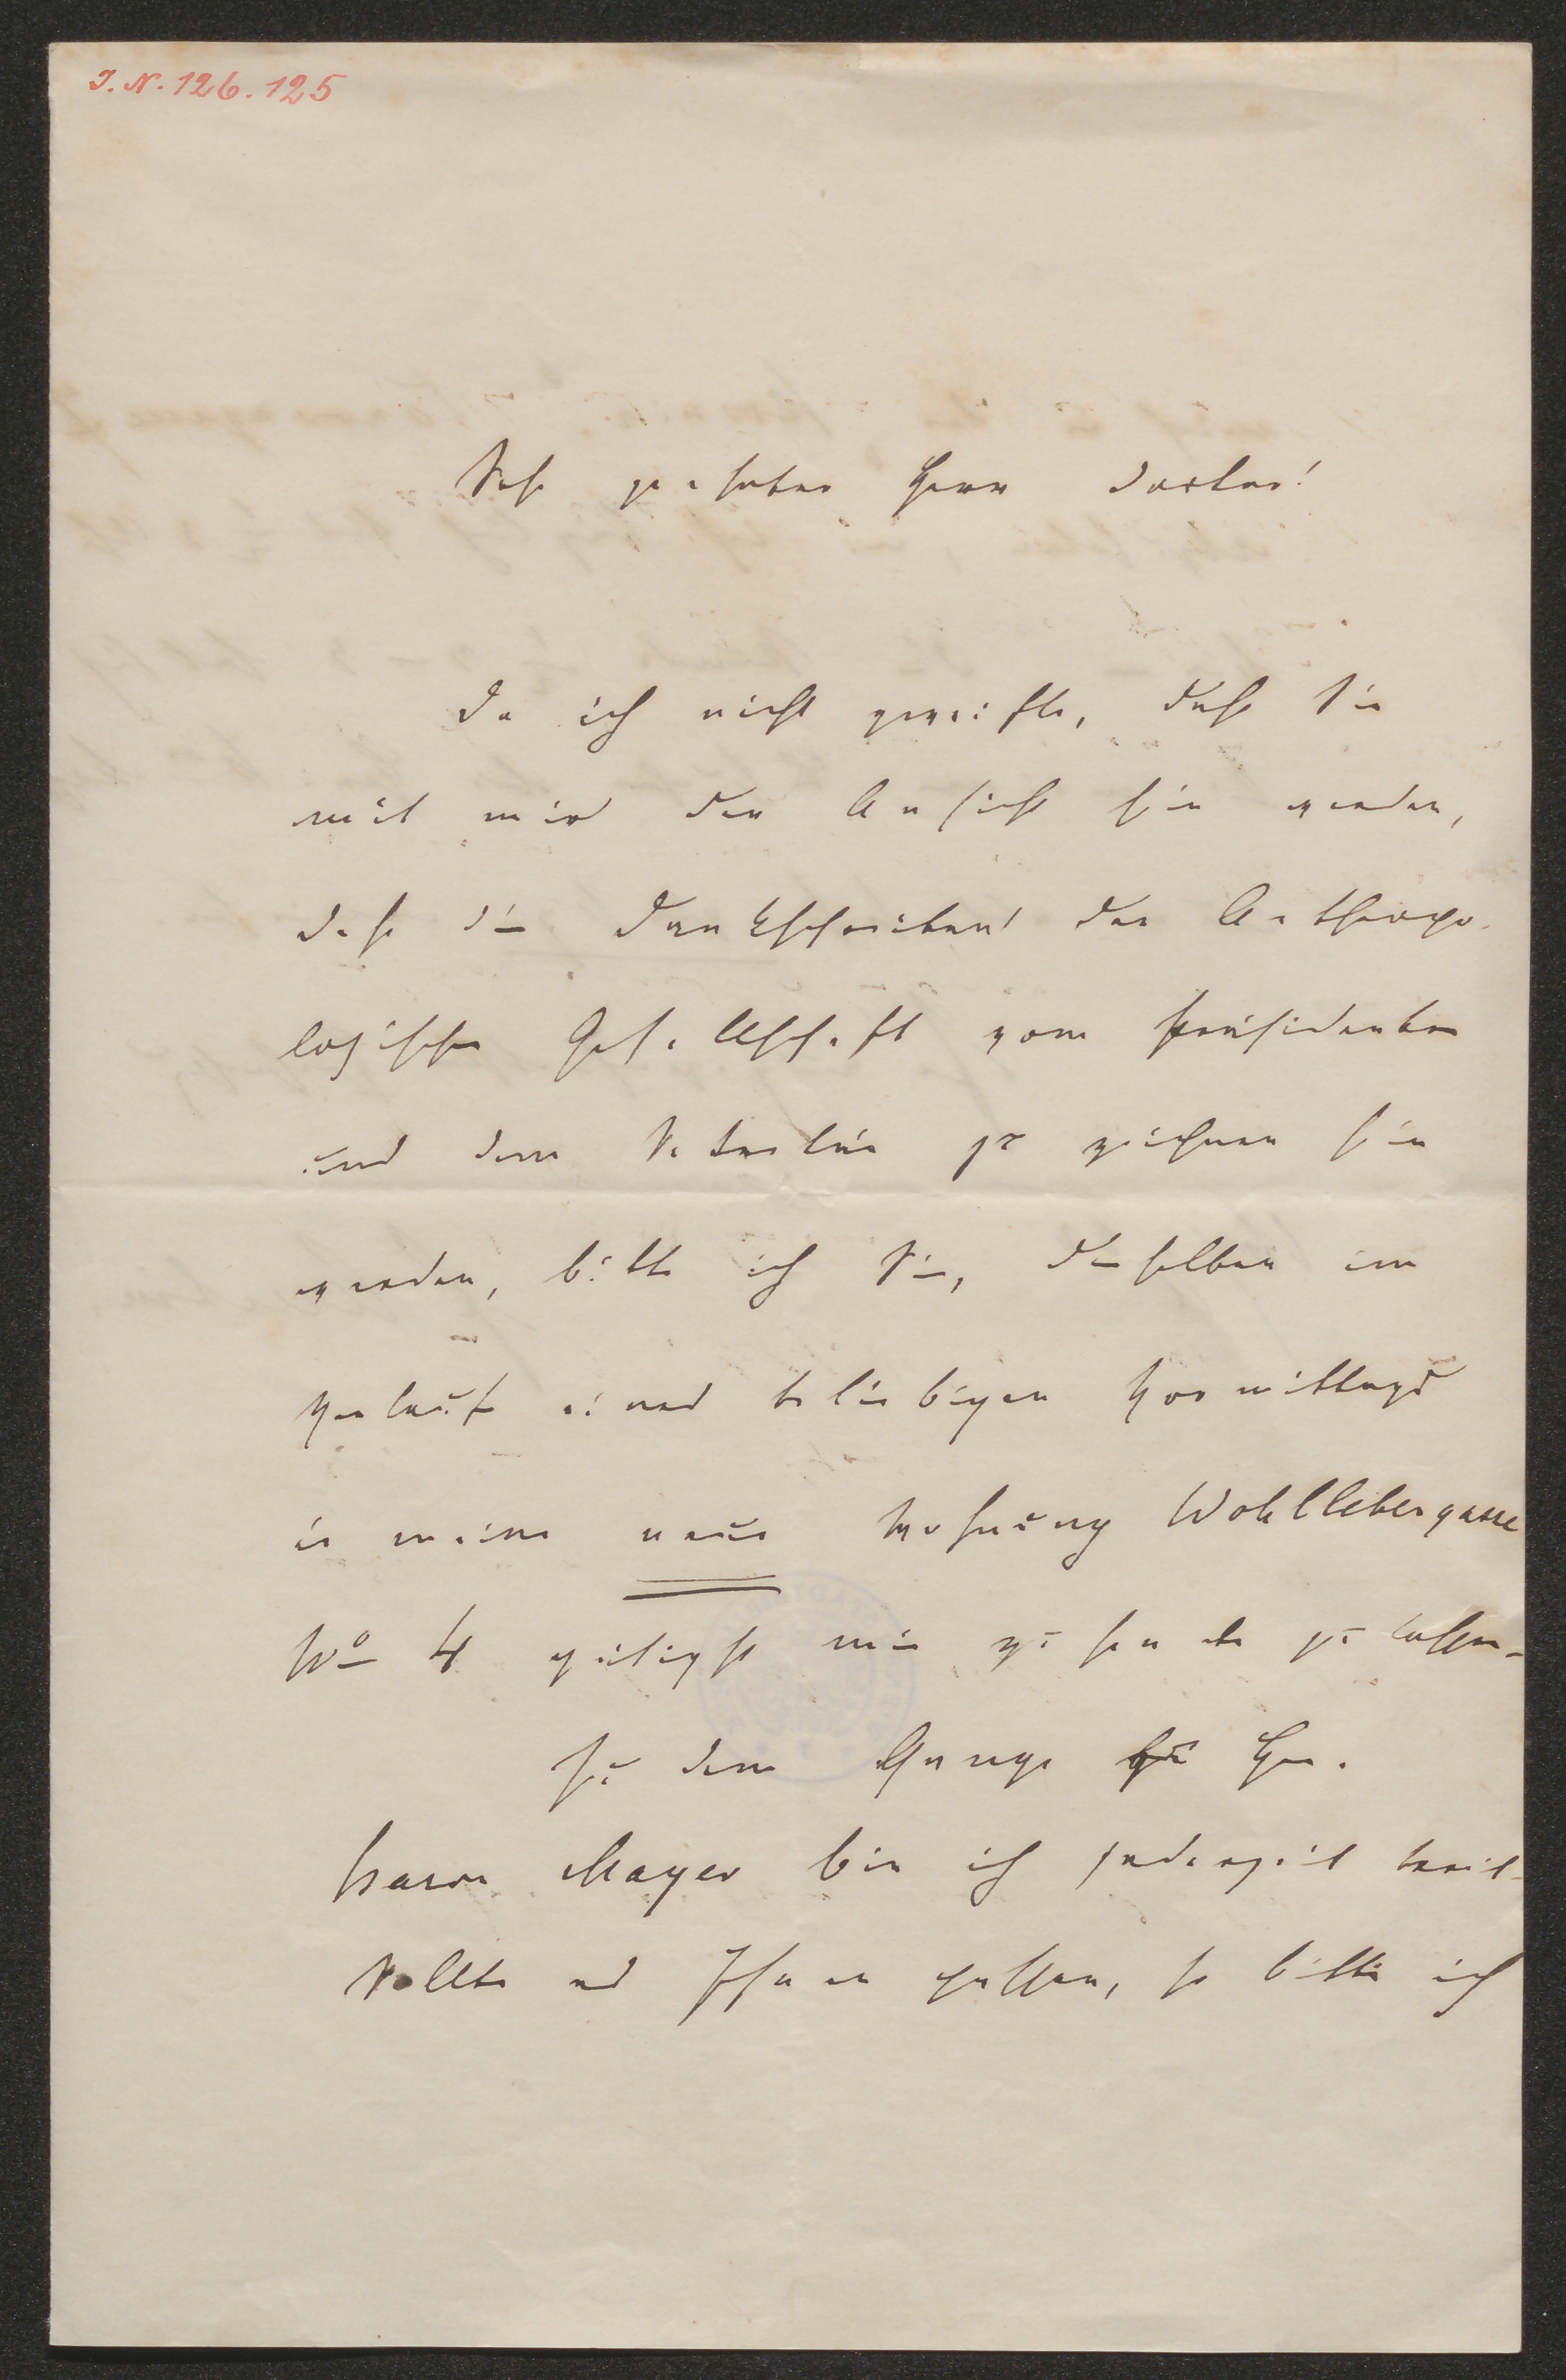 I. N. 126.125
Sehr geehrter Herr Doctor!
Da ich nicht zweifle, daß Sie
mit mir der Ansicht sein werden,
daß die Dankschreiben der Anthropo-
logischen Gesellschaft vom Präsidenten
und dem Sekretär zu zeichnen sein
werden, bitte ich Sie, dieselben im
Verlaufe eines beliebigen Vormittags
in meine neue Wohnung Wohllebengasse
No 4 gütigst mir zusenden zu lassen.
Zu dem Gange zu Hrn.
Baron Mayer bin ich jederzeit bereit.
Sollte es Ihnen passen, so bitte ich